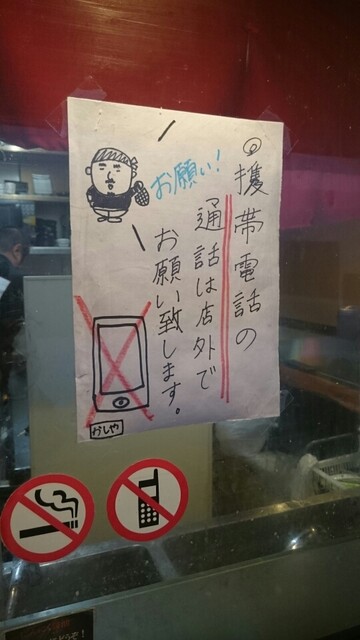 ◎携帯電話の
通話は店外で
お願い致します。
お願い!
かしや